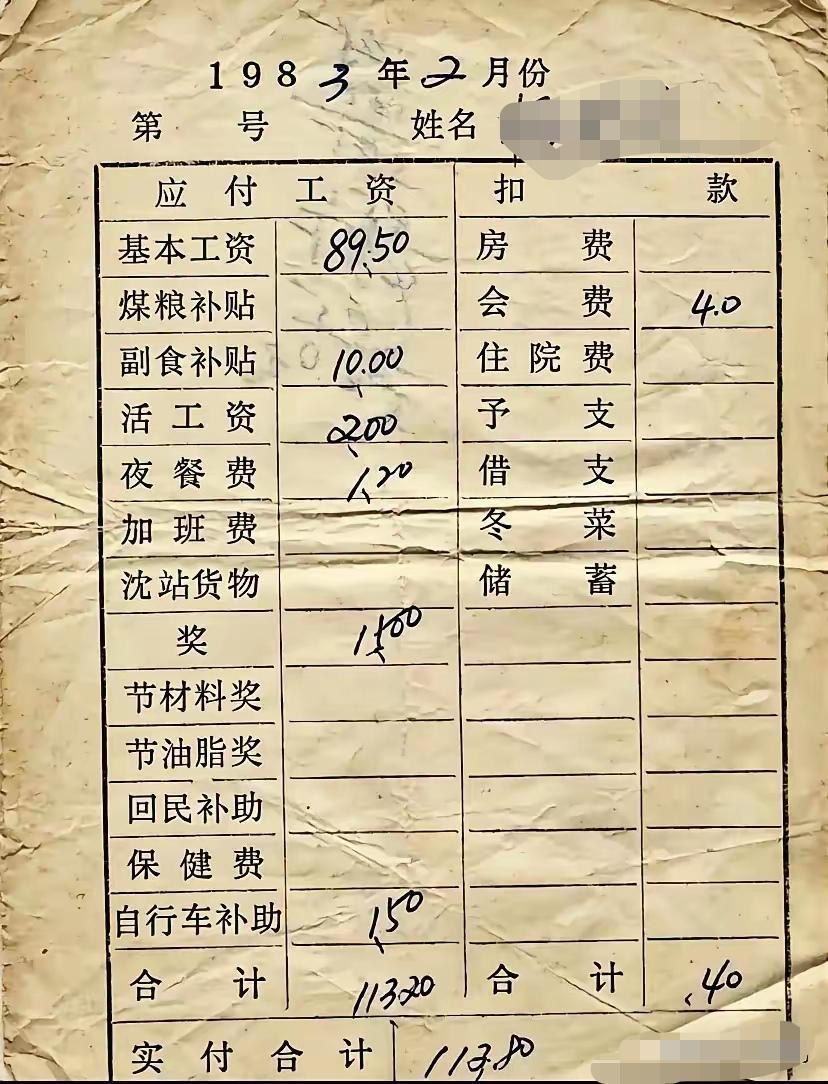 1983年2月份
第 号 姓名
应付工资 扣款
基本工资 89.50 房费
煤粮补贴 会费 4.0
副食补贴 10.00 住院费
活工资 2.00 予支
夜餐费 1.20 借支
加班费 冬菜
沈站货物 储蓄
奖 15.00
节材料奖
节油脂奖
回民补助
保健费
自行车补助 1.50
合计 11320 合计 .40
实付合计 113.80